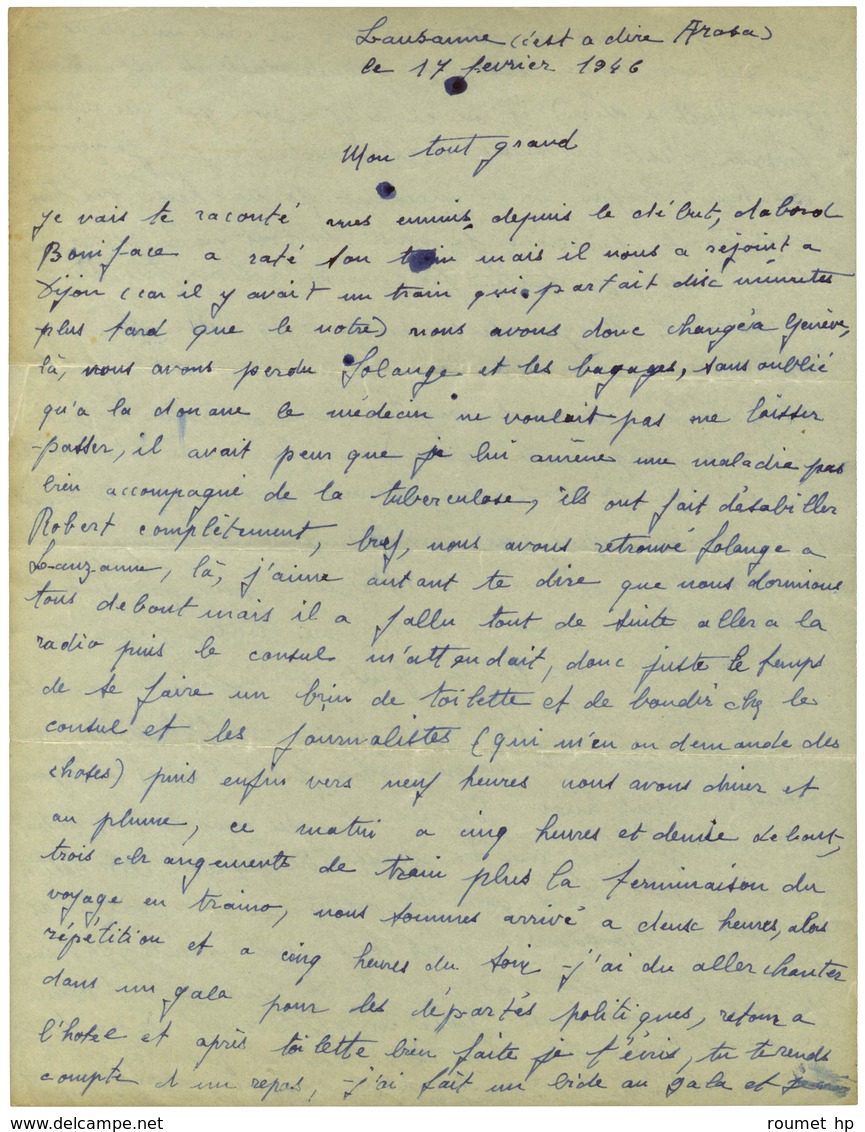 Lausanne (c'est a dire Arosa)
le 17 fevrier 1946
Mon tout grand
je vais te raconté mes ennuis depuis le début, dabord
Boniface a raté son train mais il nous a rejoint a
Dijon (car il y avait un train qui partait disc minutes
plus tard que le notre) nous avons donc changé a Genève,
là, nous avons perdu Solange et les bagages, sans oublié
qu'a la douane le médecin ne voulait pas me laisser
passer, il avait peur que je lui amène une maladie pas
bien accompagné de la tuberculose, ils ont fait désabiller
Robert complètement, bref, nous avons retrouvé Solange a
Lauzanne, là, j'aime autant te dire que nous dormions
tous debout mais il a fallu tout de suite aller a la
radio puis le consul m'attendait, donc juste le temps
de se faire un brin de toilette et de bondir chez le
consul et les journalistes (qui m'en on demandé des
choses) puis enfin vers neuf heures nous avons diner et
au plume, ce matin a cinq heures et demie debout,
trois changements de train plus la terminaison du
voyage en traino, nous sommes arrivé a deusc heures, alors
répétition et a cinq heures du soir j'ai du aller chanter
dans un gala pour les départés politiques, retour a
l'hotel et après toilette bien faite je t'écris, tu te rends
compte d'un repos, j'ai fait un bide au gala et
roumet hp